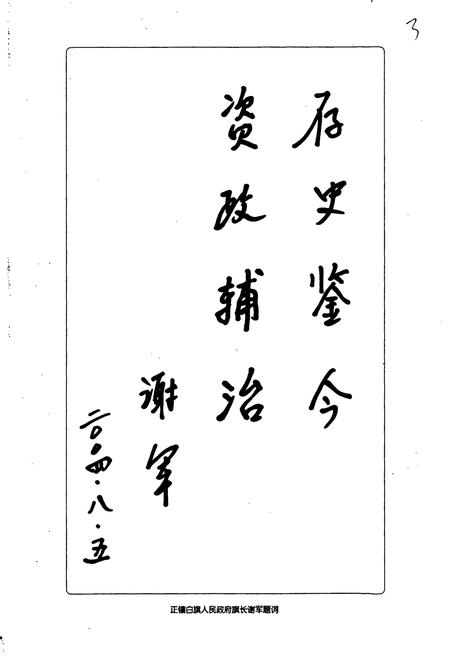 3
存史鉴今
资政辅治
谢军
二〇〇四·八·五
正镶白旗人民政府旗长谢军题词